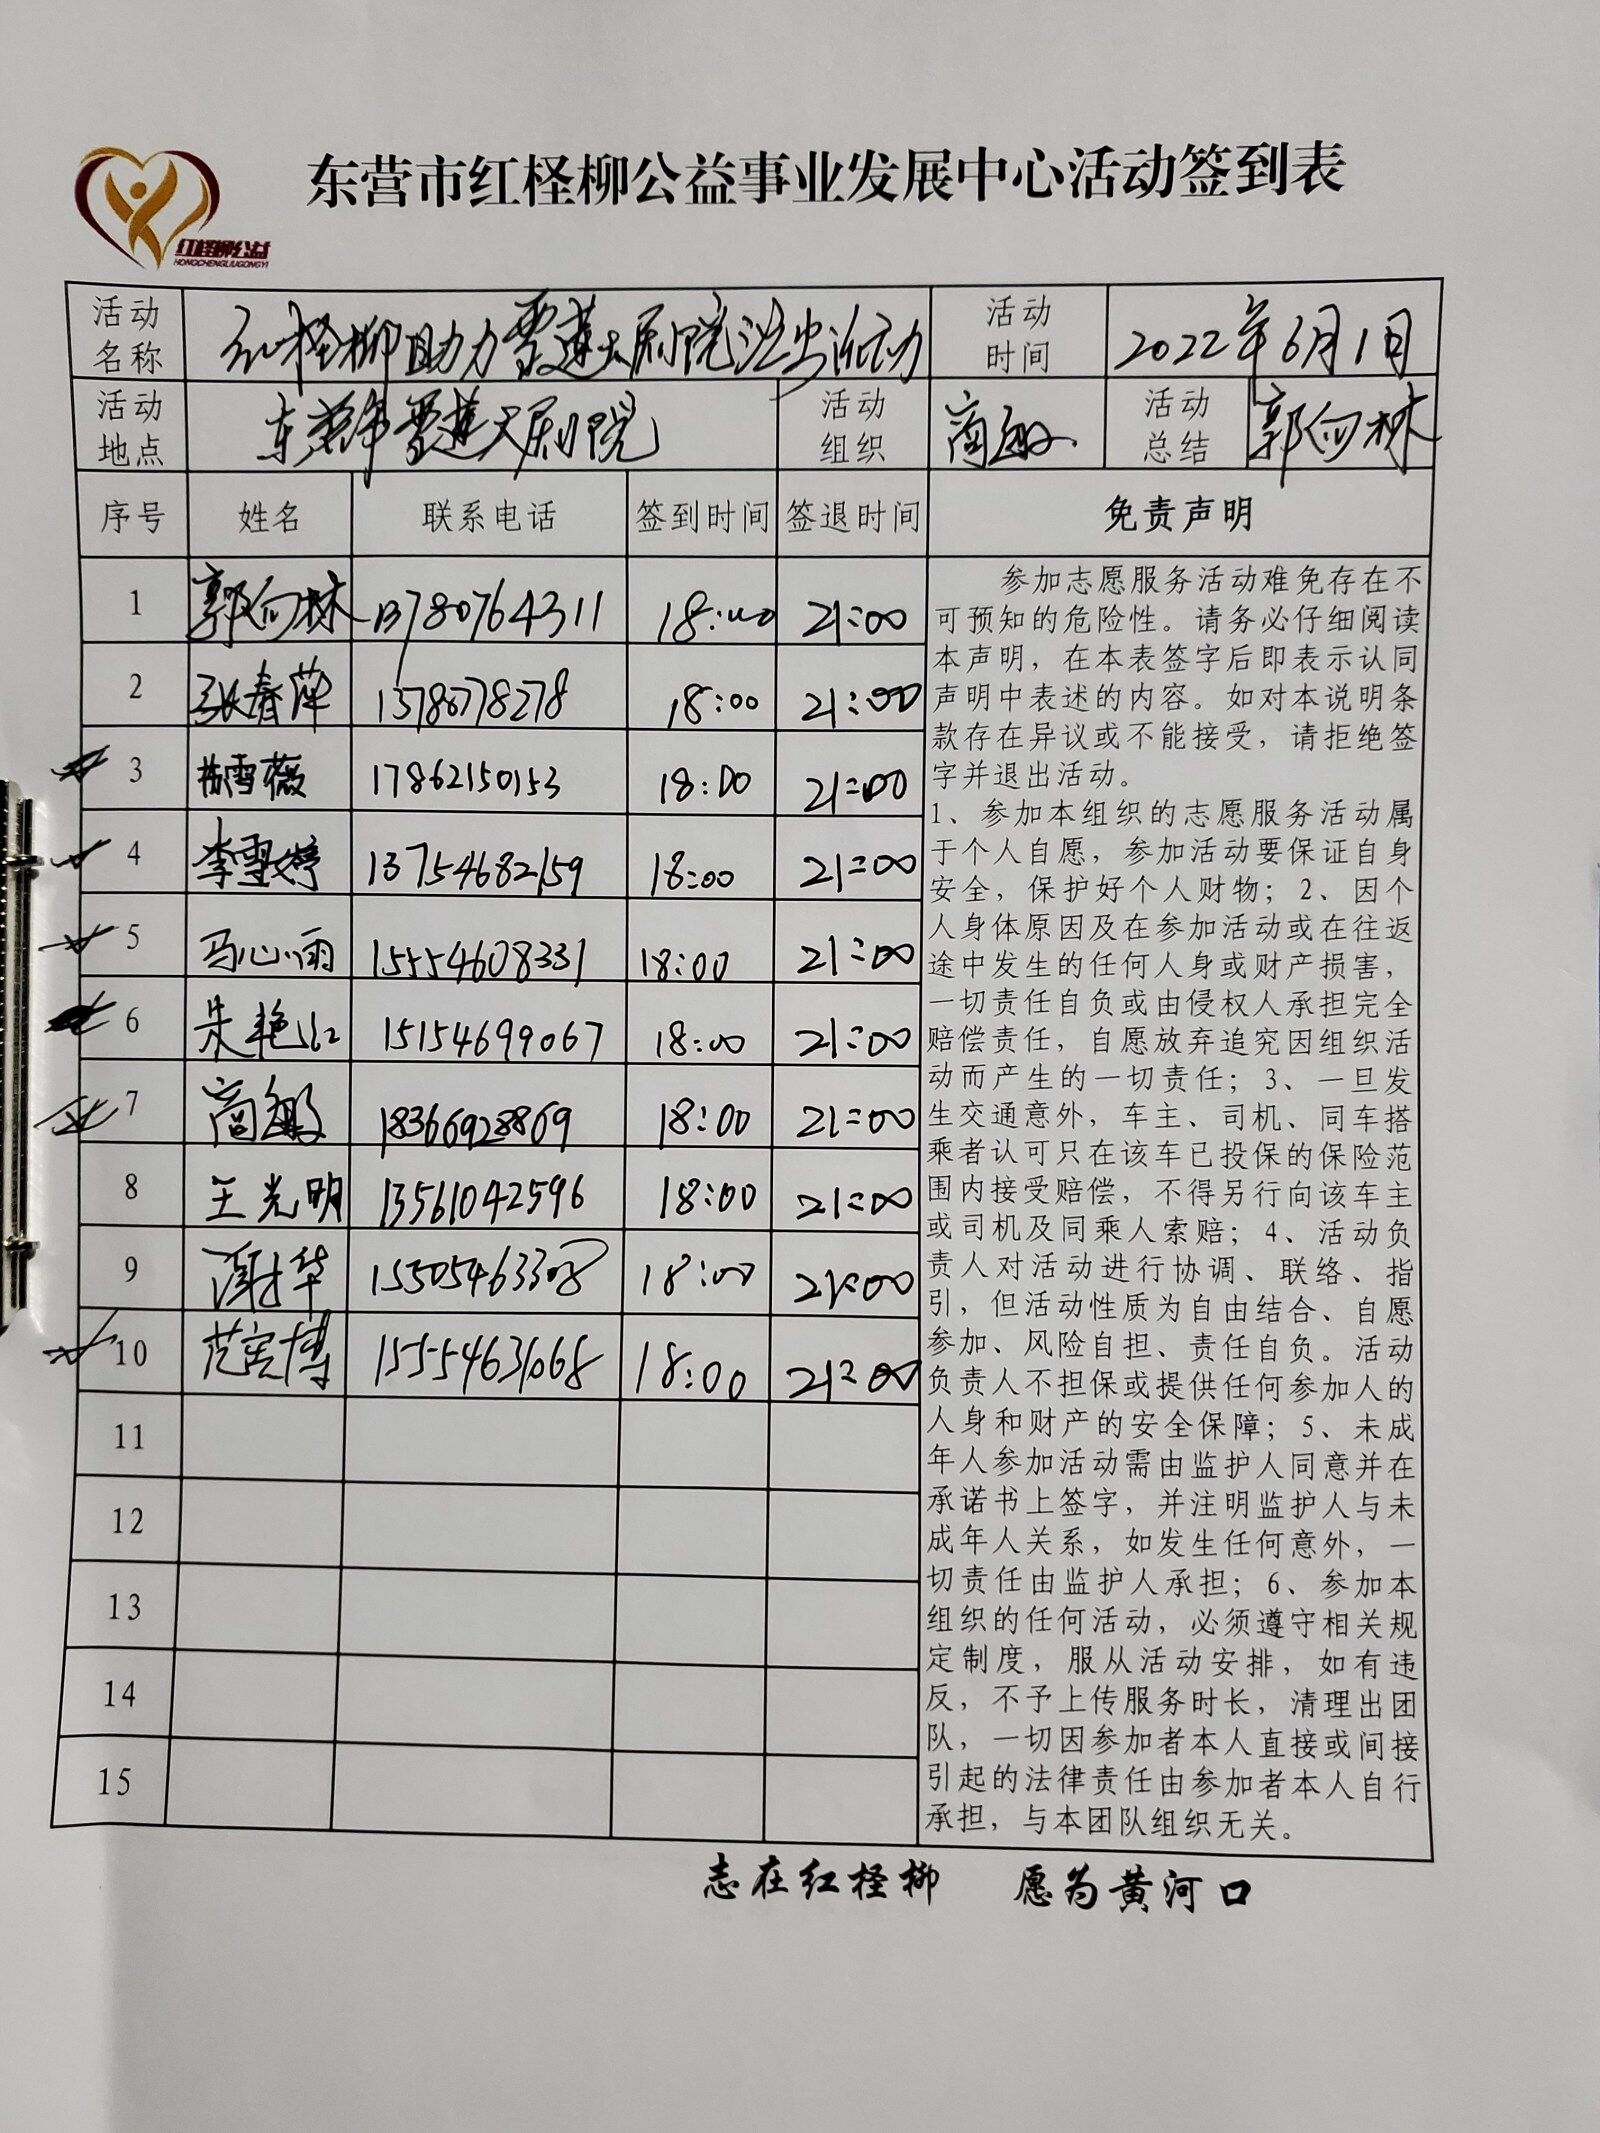 东营市红柽柳公益事业发展中心活动签到表
红柽柳公益
HONGCHENGLIUGONGYI
活动名称 红柽柳助力雪莲大剧院演出活动 活动时间 2022年6月1日
活动地点 东营市雪莲大剧院 活动组织 商敏 活动总结 郭向林
序号 姓名 联系电话 签到时间 签退时间 免责声明
1 郭向林 13780764311 18:00 21:00
2 张春萍 18:00 21:00
3 雪薇 17862150153 18:00 21:00
4 李雪婷 13754682159 18:00 21:00
5 马心雨 15554608331 18:00 21:00
6 朱艳红 15154699067 18:00 21:00
7 商敏 18366928869 18:00 21:00
8 王光明 13561042596 18:00 21:00
9 谢华 15505463308 18:00 21:00
10 范宾博 15554631068 18:00 21:00
11
12
13
14
15
参加志愿服务活动难免存在不
可预知的危险性。请务必仔细阅读
本声明，在本表签字后即表示认同
声明中表述的内容。如对本说明条
款存在异议或不能接受，请拒绝签
字并退出活动。
1、参加本组织的志愿服务活动属
于个人自愿，参加活动要保证自身
安全，保护好个人财物；2、因个
人身体原因及在参加活动或在往返
途中发生的任何人身或财产损害，
一切责任自负或由侵权人承担完全
赔偿责任，自愿放弃追究因组织活
动而产生的一切责任；3、一旦发
生交通意外，车主、司机、同车搭
乘者认可只在该车已投保的保险范
围内接受赔偿，不得另行向该车主
或司机及同乘人索赔；4、活动负
责人对活动进行协调、联络、指
引，但活动性质为自由结合、自愿
参加、风险自担、责任自负。活动
负责人不担保或提供任何参加人的
人身和财产的安全保障；5、未成
年人参加活动需由监护人同意并在
承诺书上签字，并注明监护人与未
成年人关系，如发生任何意外，一
切责任由监护人承担；6、参加本
组织的任何活动，必须遵守相关规
定制度，服从活动安排，如有违
反，不予上传服务时长，清理出团
队，一切因参加者本人直接或间接
引起的法律责任由参加者本人自行
承担，与本团队组织无关。
志在红柽柳 愿为黄河口